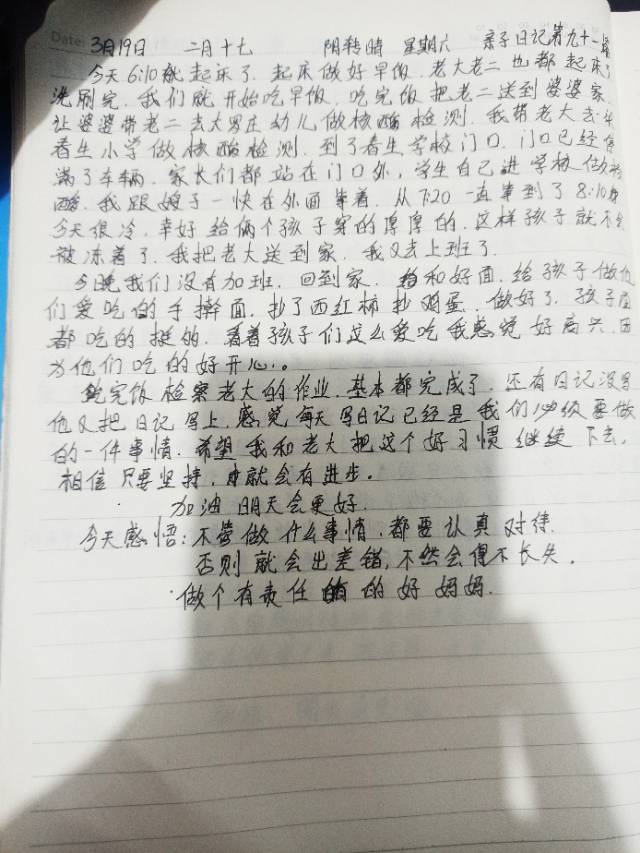 Date: 3月19日 二月十七 阴转晴 星期六 亲子日记第九十一篇
今天6:10就起床了.起床做好早饭.老大老二也都起床了
洗刷完.我们就开始吃早饭.吃完饭把老二送到婆婆家.
让婆婆带老二去大男庄幼儿做核酸检测.我带老大去
春生小学做核酸检测.到了春生学校门口.门口已经停
满了车辆.家长们都站在门口外,学生自己进学校做核
酸.我跟嫂子一快在外面等着.从7:20一直等到了8:10
今天很冷.幸好给俩个孩子穿的厚厚的.这样孩子就不会
被冻着了.我把老大送到家.我又去上班了.
今晚我们没有加班.回到家.和好面.给孩子做他
们爱吃的手擀面.抄了西红柿抄鸡蛋.做好了.孩子
都吃的挺的.看着孩子们这么爱吃我感觉好高兴.因
为他们吃的好开心.。
吃完饭检察老大的作业.基本都完成了.还有日记没写
他又把日记写上.感觉每天写日记已经是我们必须要做
的一件事情.希望我和老大把这个好习惯继续下去.
相信只要坚持,就会有进步。
加油 明天会更好.
今天感悟:不管做什么事情.都要认真对待.
否则就会出差错,不然会得不长失.
做个有责任的好妈妈.